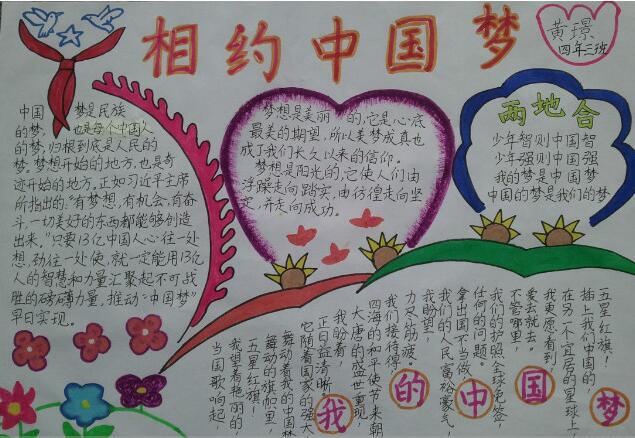 相约中国梦
黄璟
四年三班
中国梦是民族
的梦,也是每个中国人
的梦,归根到底是人民的
梦。梦想开始的地方,也是奇
迹开始的地方,正如习近平主席
所指出的,“有梦想,有机会,有奋
斗,一切美好的东西都能够创造
出来,”只要13亿中国人心往一处
想,劲往一处使,就一定能用13亿
人的智慧和力量汇聚起不可战
胜的磅礴力量,推动“中国梦”
早日实现。
梦想是美丽的,它是心底
最美的期望,所以美梦成真也
成了我们长久以来的信仰。
梦想是阳光的,它使人们由
浮躁走向踏实,由彷徨走向坚
定,并走向成功。
两地合
少年智则中国智
少年强则中国强
我的梦是中国梦
中国的梦是我们的梦
五星红旗!
插上我们中国的
在另一个宜居的星球上
我更愿看到,
爱去就去。
不管哪里,
我们的护照,全球免签,
任何的问题。
拿出国不当做
我们的人民富裕豪气,
我盼望,
力尽筋疲。
我们接待得
四海的和平使节来朝
大唐的盛世重现,
我盼着,
正日益清晰。
它随着国家的强大
舞动着我的中国梦
舞动的旗帜里,
五星红旗!
我望着有艳丽的
当国歌响起,
我的中国梦